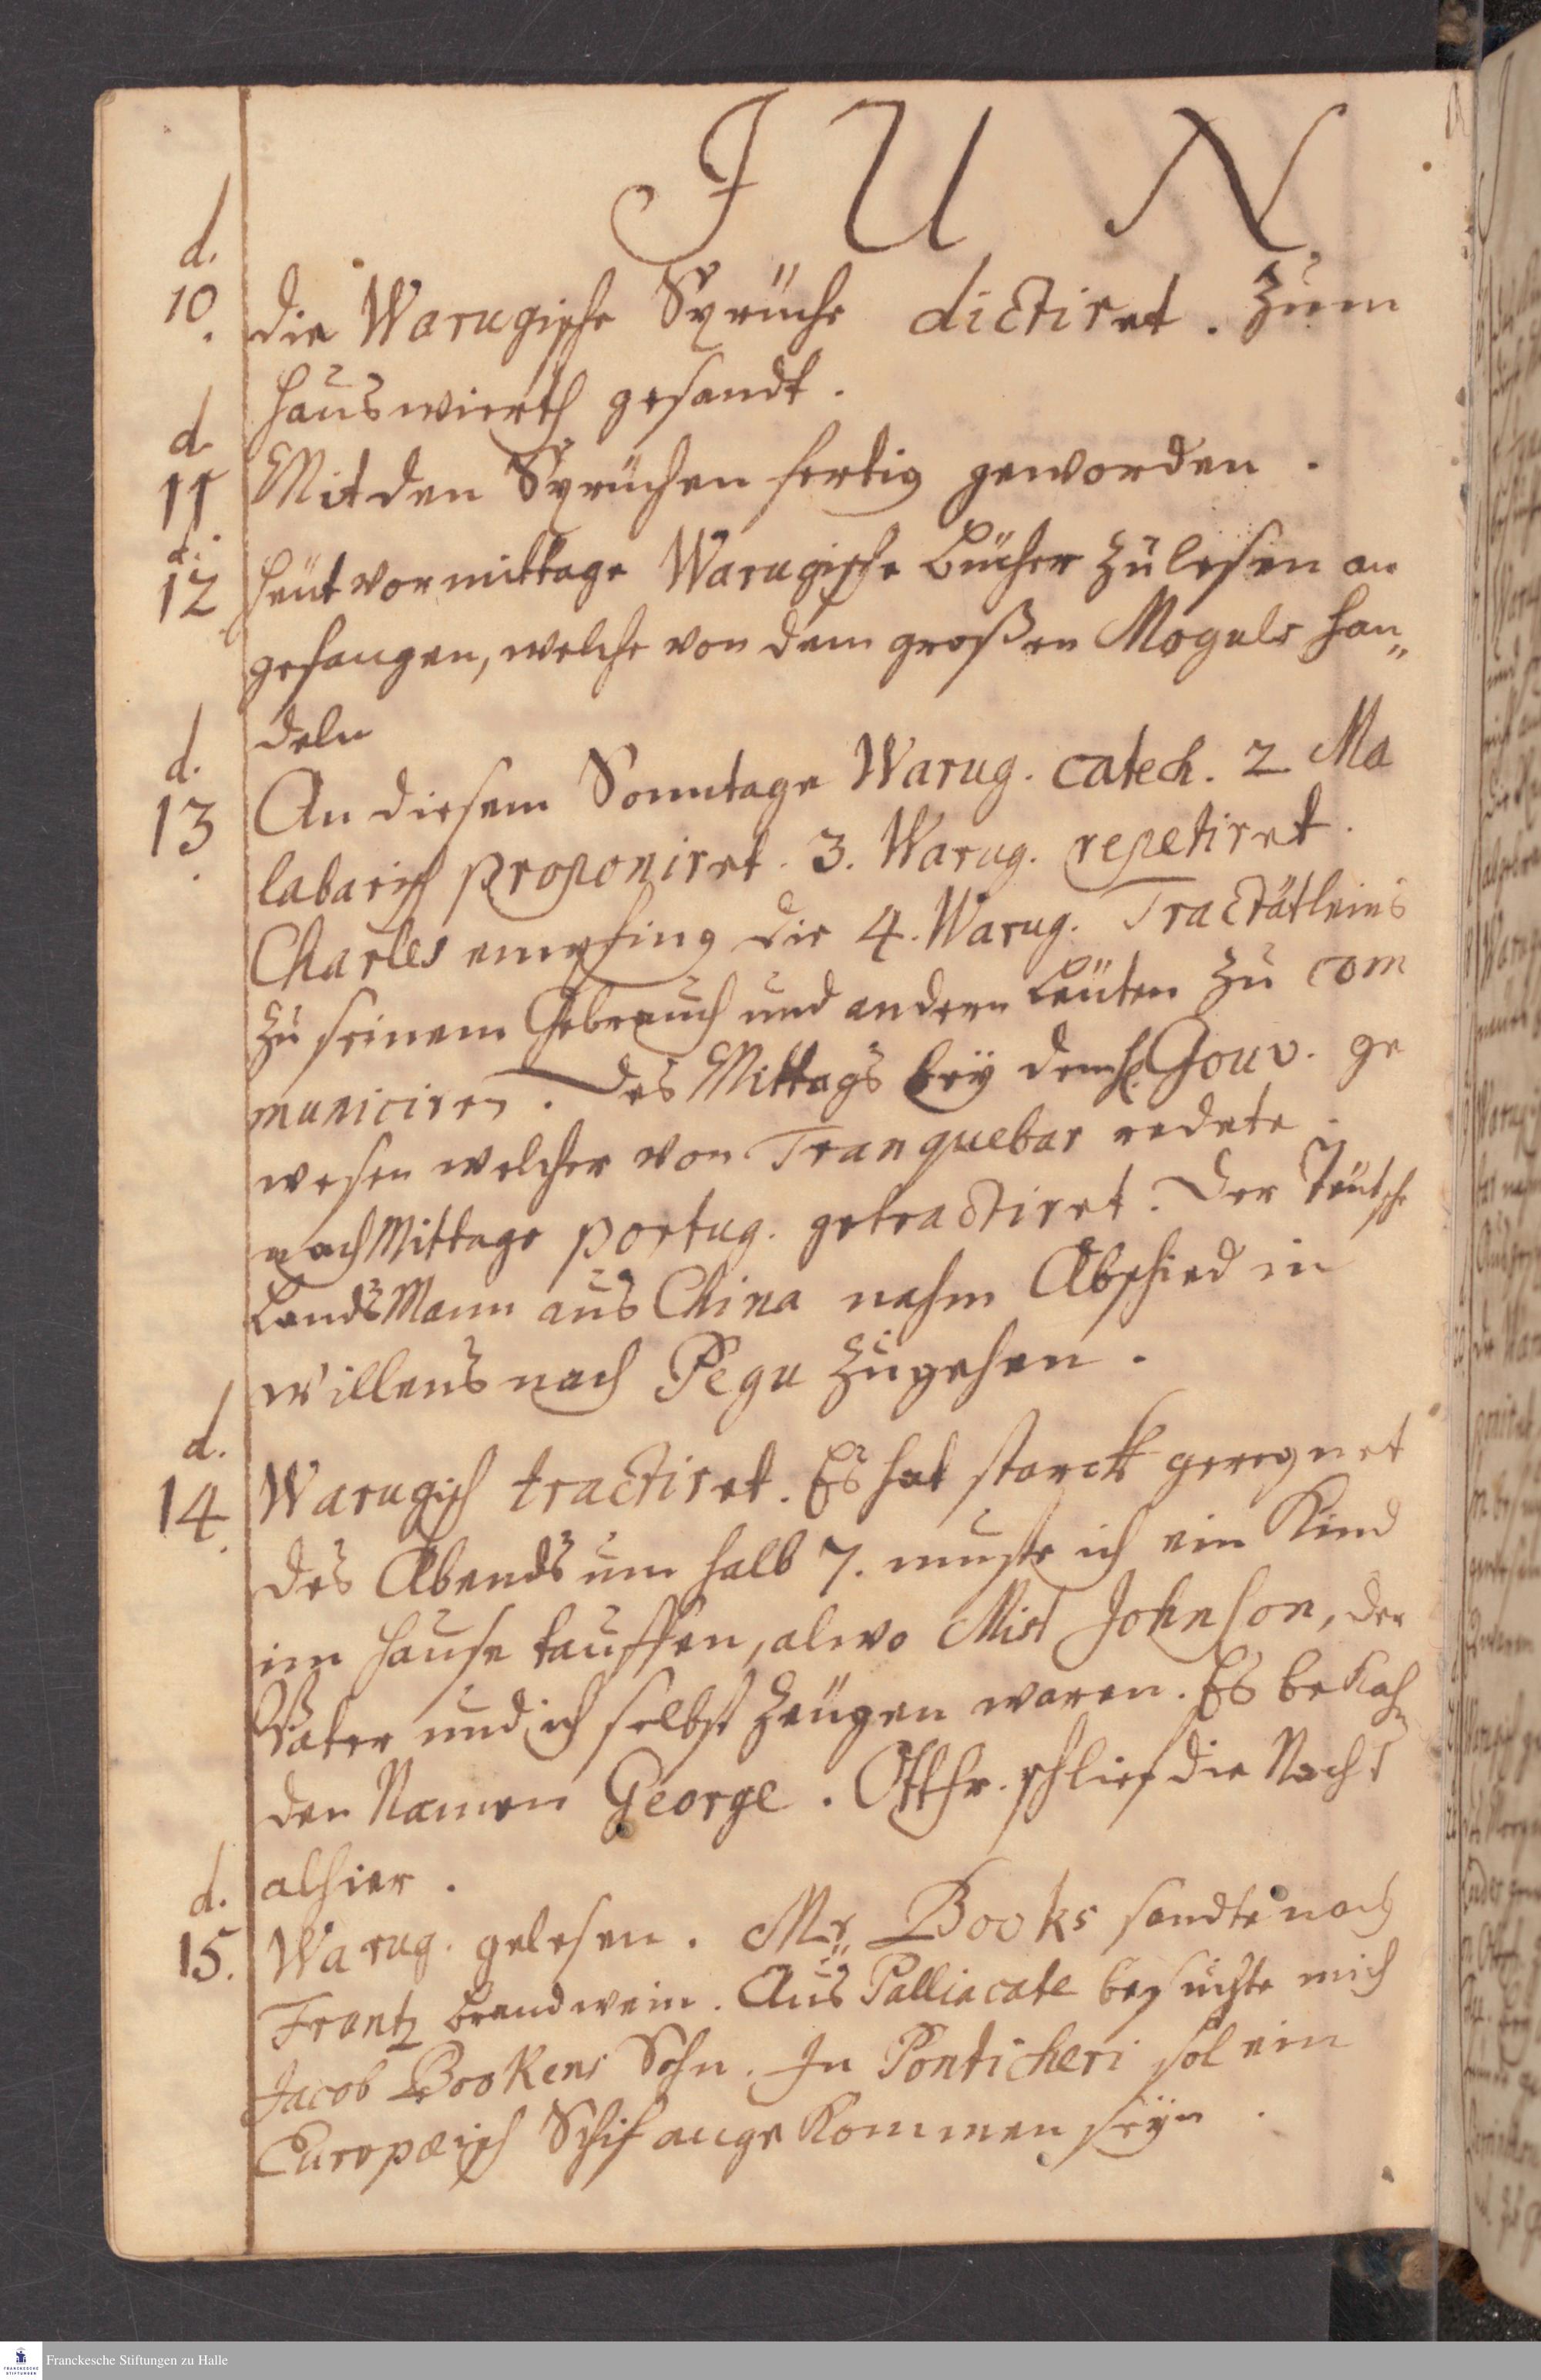 JUN
d.
10. die Warugische Sprüche dictiret. Zum
Hauswierth gesandt.
d.
11 Mit den Sprüchen fertig geworden.
d.
12 Heut vormittage Warugische Bücher zu lesen an
gefangen, welche von dem großen Moguls han„
deln
d.
13. An diesem Sonntage Warug. catech. 2 Ma
labarisch proponiret. 3. Warug. repetiret.
Charles empfing die 4. Warug. Tractätleins
zu seinem Gebrauch und andern Leuten zu com
municiren. Des Mittags bey dem H. Gouv. ge
wesen welcher von Tranquebar redete.
nach Mittage portug. getractiret. Der Teutsche
Lands Mann aus China nahm Abschied in
willens nach Pegu zugehen.
d.
14. Warugisch tractiret. Es hat starck geregnet
des Abends um halb 7. muste ich ein Kind
im Hause tauffen, alwo Mist Johnson, der
Vater und ich selbst Zeugen waren. Es bekahm
den Namen George. Ottfr. schlief die Nacht
alhier.
d.
15. Warug. gelesen. Mr Books sandte noch
Frantz brandwein. Aus Palliacate besuchte mich
Jacob Bookens Sohn. In Ponticheri sol ein
Europæisch Schif angekommen seÿn.
Franckesche Stiftungen zu Halle